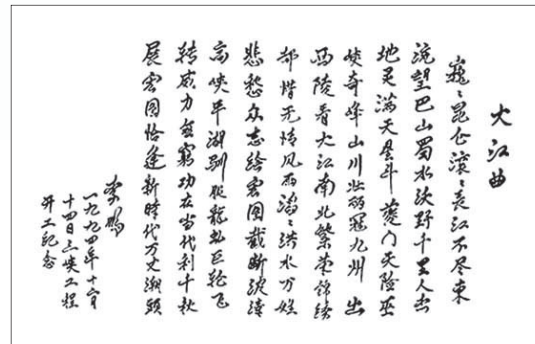 大江曲
巍巍昆仑滚滚长江不尽东
流望巴山蜀水沃野千里人杰
地灵满天星斗夔门天险巫
峡奇峰山川壮丽冠九州出
西陵看大江南北繁荣锦绣
却惜无情风雨滔滔洪水万姓
悲愁众志绘宏图截断波涛
高峡平湖驯服龙虬巨轮飞
转威力无穷功在当代利千秋
展宏图恰逢新时代万丈潮头
李鹏
一九九四年十二月
十四日三峡工程
开工纪念